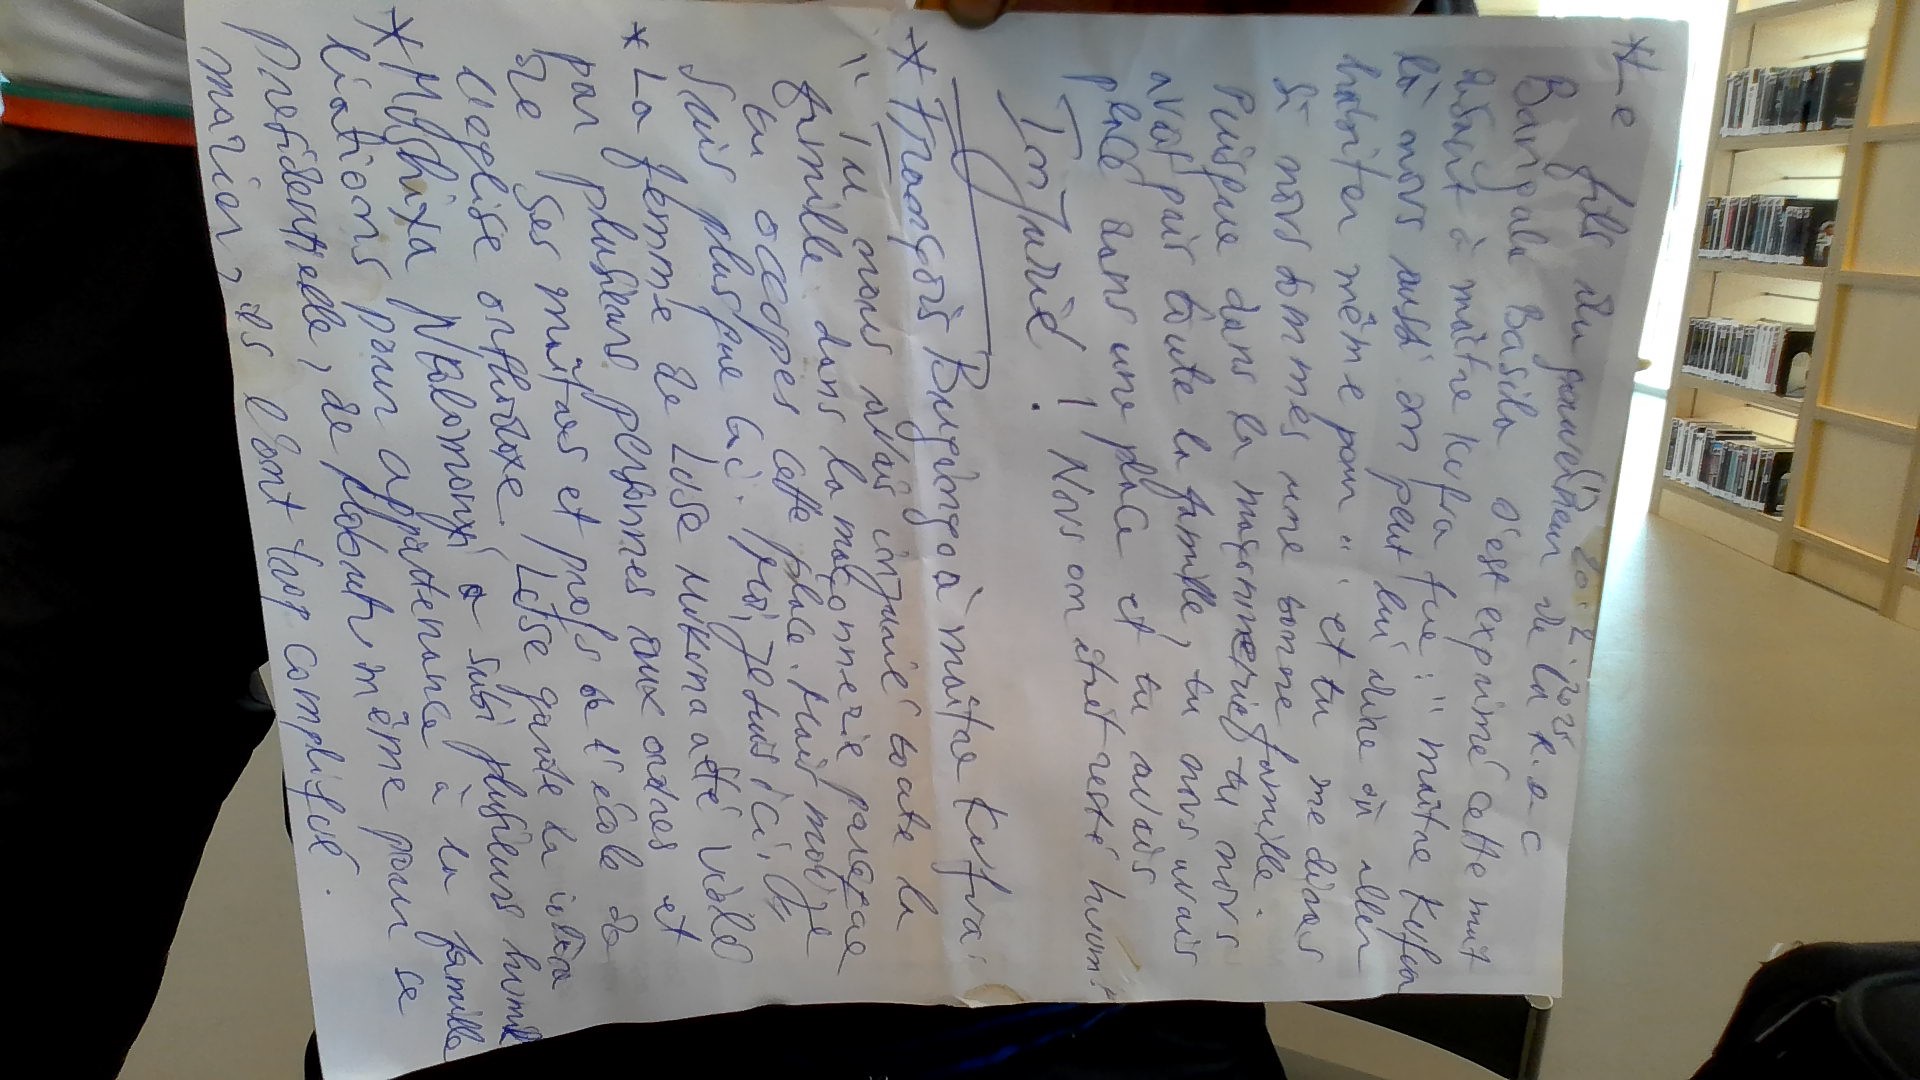 11) 20. 2. 2025
*Le fils du gouverneur de la R.D.C
Bangala Basila s'est exprimé cette nuit
disant à maître Kufwa que : " maître Kufwa
là nous aussi on peut lui dire où aller
habiter même pour " et tu me diras
si nous sommes une bonne famille.
Puisque dans la maçonnerie, tu nous
avais pris toute la famille, tu nous avais
placé dans une place et tu avais
Injurié ! Nous on était resté humi-
* François Bugingo à maître Kufwa :
" Tu nous avais injurié toute la
famille dans la maçonnerie parce que
tu occupes cette place. Mais moi je
suis plus que ça. Moi, je suis ici, ok
* La femme de Luse Mukuna a été violé
par plusieurs personnes aux ordres et
de ses maîtres et profs de l'école de
l'église orthodoxe. Luse garde la
* Mushiya Nkolomonyi a subi plusieurs humi
liations pour appartenance à la famille
Présidentielle, de plobout, même pour se
marier, ils l'ont trop compliqué.